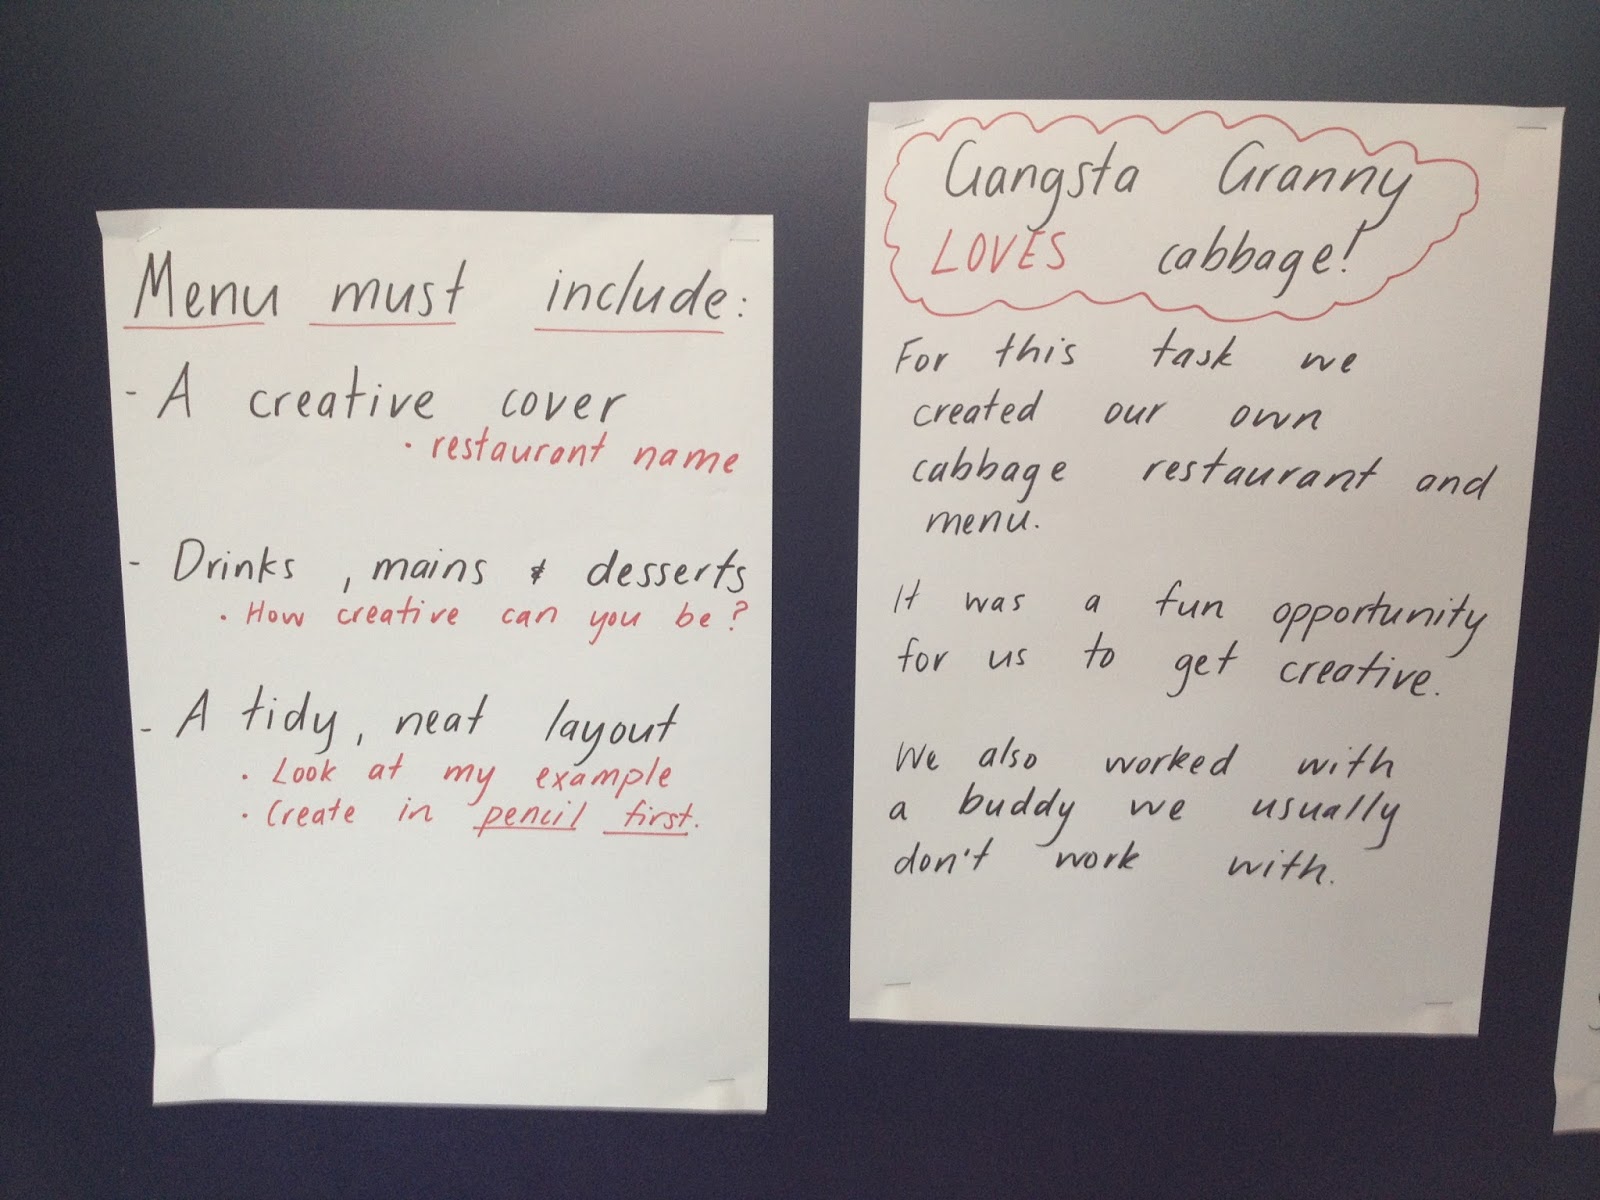 Menu must include:
- A creative cover
• restaurant name
- Drinks, mains & desserts
• How creative can you be?
- A tidy, neat layout
• Look at my example
• Create in pencil first.
Gangsta Granny
LOVES cabbage!
For this task we
created our own
cabbage restaurant and
menu.
It was a fun opportunity
for us to get creative.
We also worked with
a buddy we usually
don't work with.